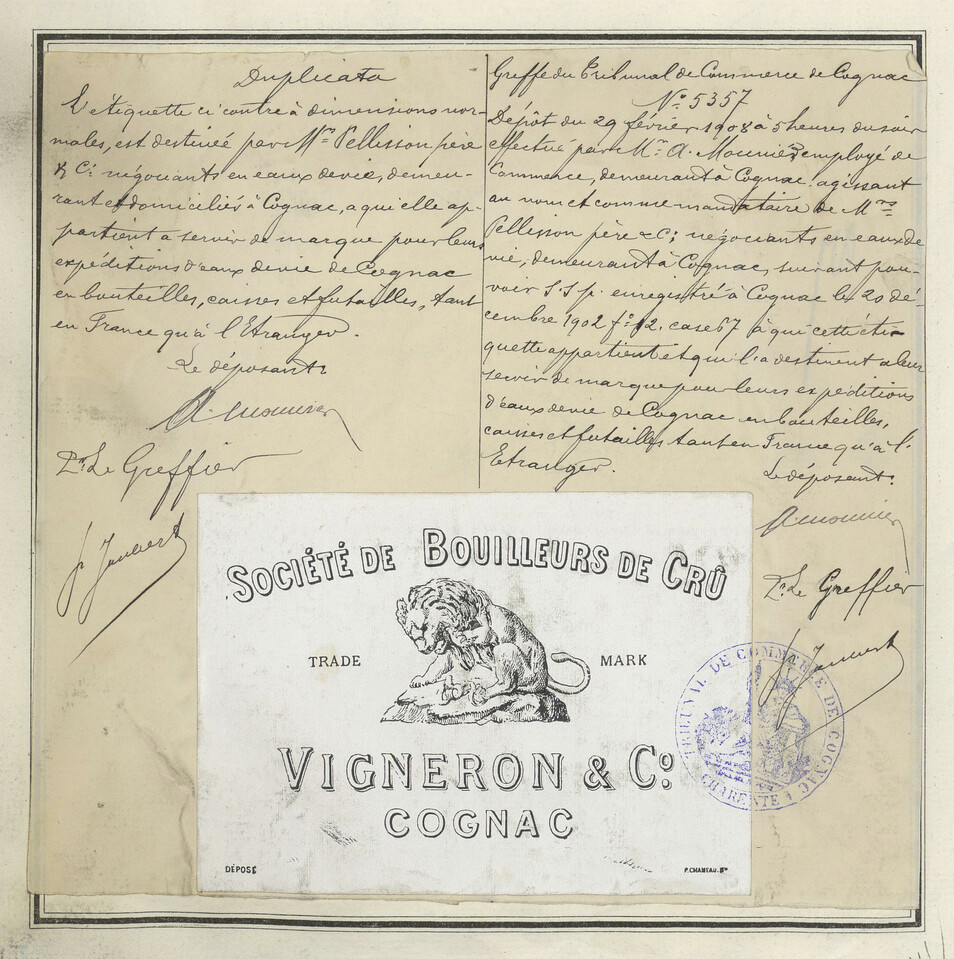 Duplicata
L'étiquette ci contre à dimensions nor-
males, est destinée par Mrs Pellisson père
& Cie négociants en eaux de vie, demeu-
rant et domiciliés à Cognac, a qui elle ap-
partient a servir de marque pour leurs
expéditions d'eaux de vie de Cognac
en bouteilles, caisses et futailles, tant
en France qu'à l'Etranger.
Le déposant:
A. Mounier
Pr. Le Greffier
J. Joubert
Greffe du Tribunal de Commerce de Cognac
No. 5357
Dépôt du 29 février 1908 à 5 heures du soir
effectué par Mr. A. Mounier, employé de
Commerce, demeurant à Cognac agissant
au nom et comme mandataire de Mrs
Pellisson père & Cie négociants en eaux de
vie, demeurant à Cognac, suivant pou-
voir S.S.p. enregistré à Cognac le 20 dé-
cembre 1902 fo. 12. case 67 à qui cette éti-
quette appartient et qui l'a destinent a leur
servir de marque pour leurs expéditions
d'eaux de vie de Cognac en bouteilles,
caisses et futailles tant en France qu'à l'
Etranger.
Le déposant:
A. Mounier
Pr. Le Greffier
J. Joubert
SOCIÉTÉ DE BOUILLEURS DE CRÛ
TRADE MARK
VIGNERON & Co.
COGNAC
DÉPOSÉ
P. CHANTAU. Bx
TRIBUNAL DE COMMERCE DE COGNAC
CHARENTE